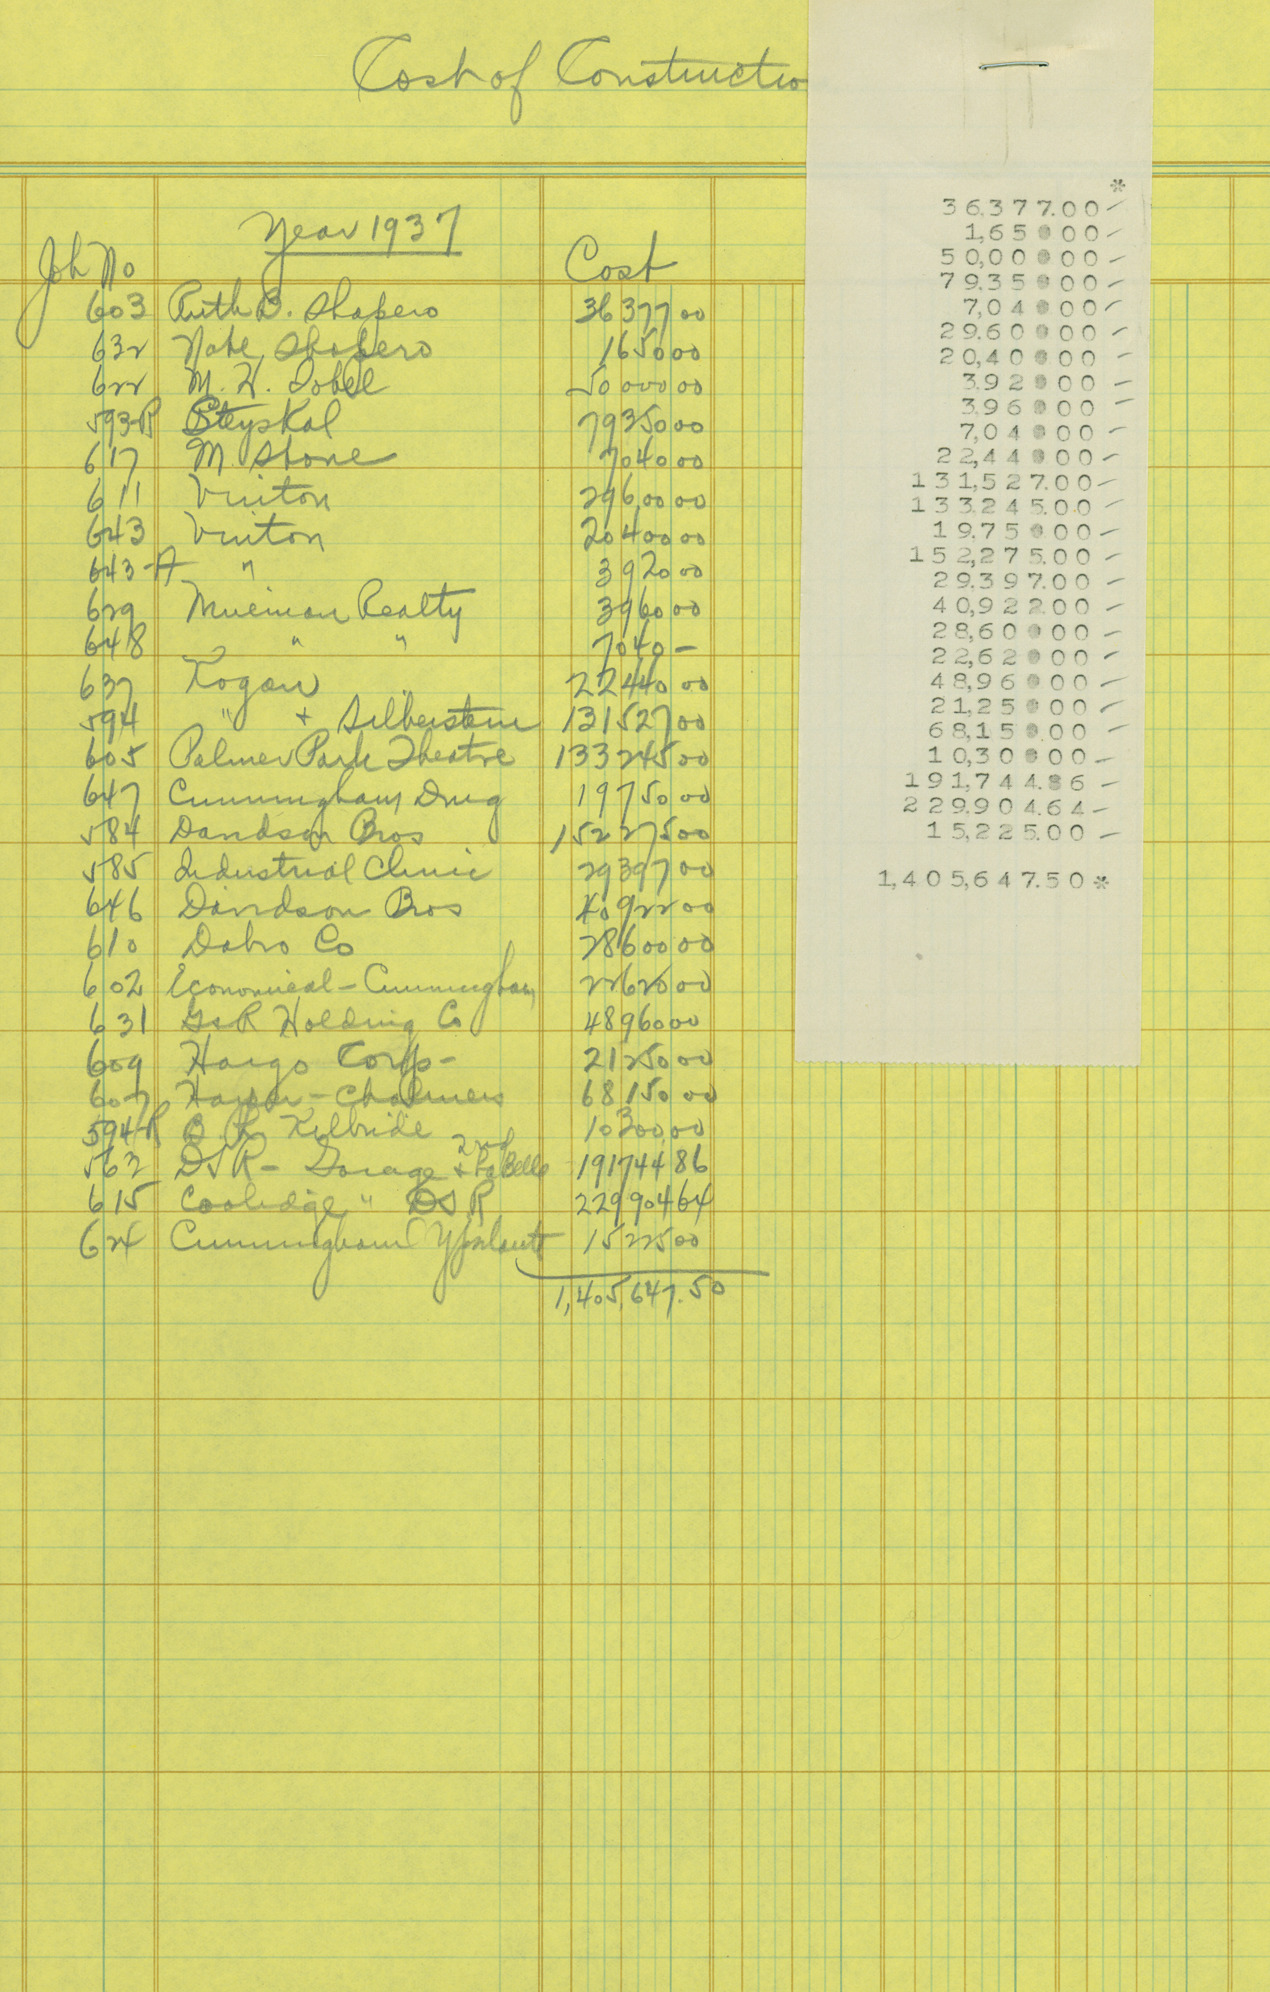 Cost of Constructio
Year 1937
Job No Cost
603 Ruth B. Shapero 36377 00
632 Nate Shapero 1650 00
622 M. H. Tobel 50000 00
593-R Steyskal 79350 00
617 M. Stone 7040 00
611 Vinton 29600 00
643 Vinton 20400 00
643-A " 3920 00
629 Realty 3960 00
648 " " 7040 -
637 Kogan 22440 00
594 " + Silberstein 131527 00
605 Palmer Park Theatre 133245 00
647 Cunningham Drug 19750 00
584 Davidson Bros 152275 00
585 Industrial Clinic 29397 00
646 Davidson Bros 40922 00
610 Dabro Co 28600 00
602 Economical - Cunningham 22620 00
631 G&R Holding Co 48960 00
609 Hargo Corp- 21250 00
607 - Chalmers 68150 00
594-R Kilbride 10300 00
562 DSR - Garage + LaBelle 191744 86
615 Coolidge " DSR 229904 64
624 Cunningham 15225 00
1,405,647.50
*
36,377.00 -
1,650.00 -
50,000.00 -
79,350.00 -
7,040.00 -
29,600.00 -
20,400.00 -
3,920.00 -
3,960.00 -
7,040.00 -
22,440.00 -
131,527.00 -
133,245.00 -
19,750.00 -
152,275.00 -
29,397.00 -
40,922.00 -
28,600.00 -
22,620.00 -
48,960.00 -
21,250.00 -
68,150.00 -
10,300.00 -
191,744.86 -
229,904.64 -
15,225.00 -
1,405,647.50 *